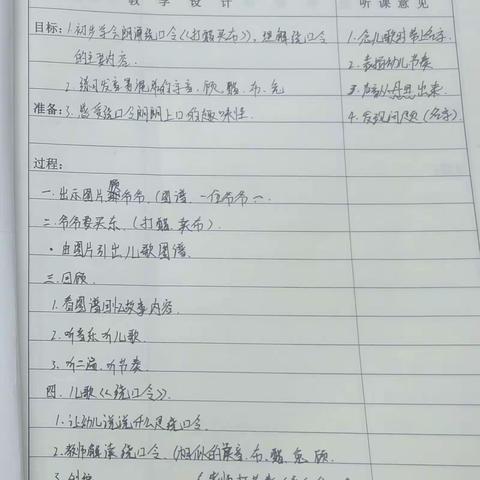 教 学 设 计
听 课 意 见
目标:1.初步学会朗诵绕口令《打醋买布》,理解绕口令
的主要内容。
2.练习发音易混淆的字音:顾、醋、布、兔
准备:3.感受绕口令朗朗上口的趣味性.
1.念儿歌时带上名字.
2.表扬幼儿节奏
4.发现问题(名字)
过程:
一.出示图片 顾爷爷,(图谱,一位爷爷
二.爷爷要买东,(打醋,卖布)
·由图片引出儿歌图谱.
三.回顾.
1.看图谱回忆故事内容.
2.听音乐听儿歌.
3.听二遍,听节奏
四.儿歌《绕口令》.
1.让幼儿说说什么是绕口令.
2.教师解读绕口令.(相似的 音,布、醋、兔、顾.